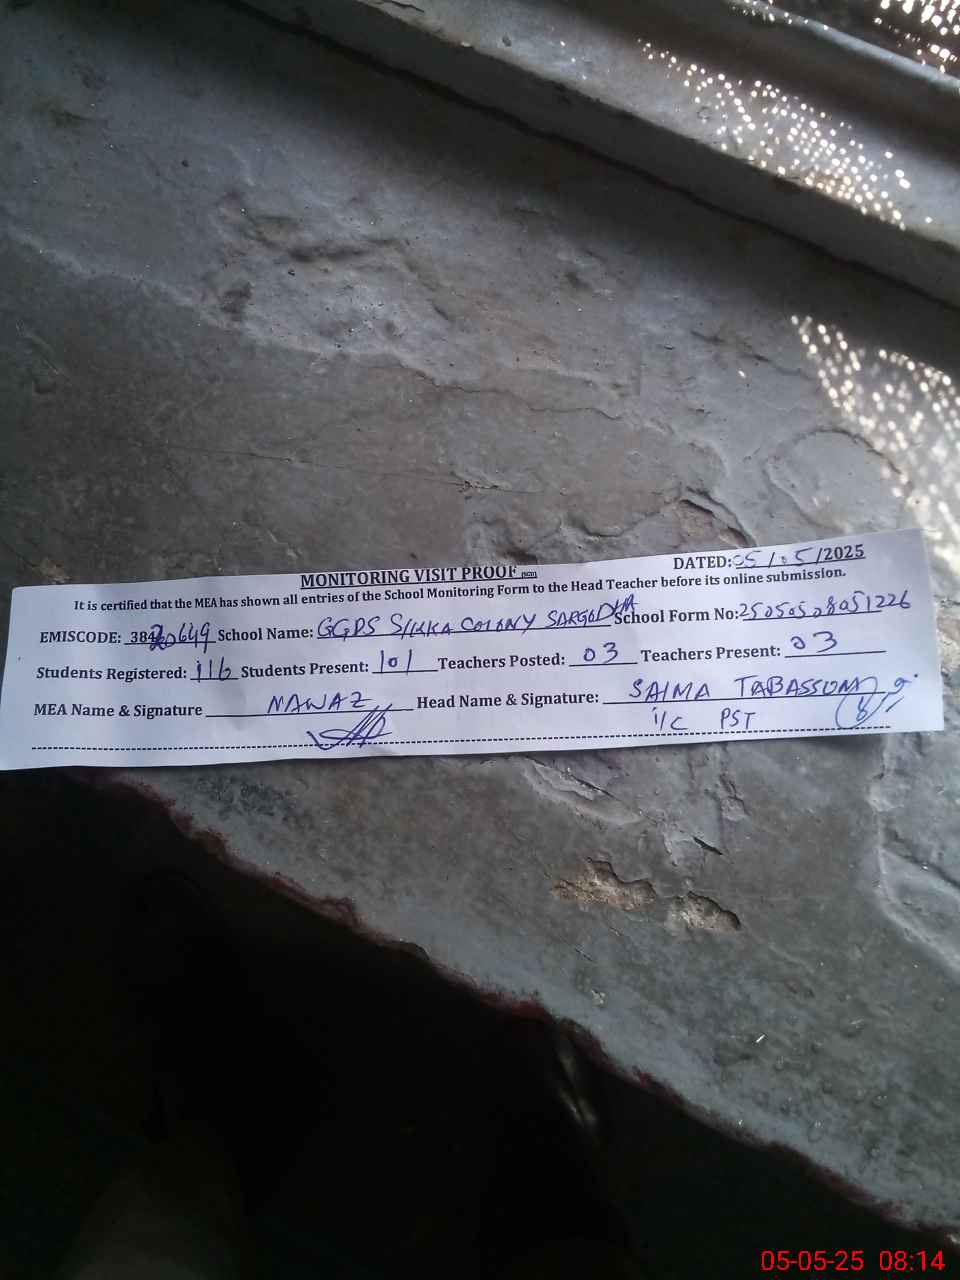 MONITORING VISIT PROOF
DATED: 05/05/2025
It is certified that the MEA has shown all entries of the School Monitoring Form to the Head Teacher before its online submission.
EMISCODE: 38420649 School Name: GGPS SIKKA COLONY SARGODHA School Form No: 25050528051226
Students Registered: 116 Students Present: 101 Teachers Posted: 03 Teachers Present: 03
MEA Name & Signature NAWAZ Head Name & Signature: SAIMA TABASSUM
i/c PST
05-05-25 08:14